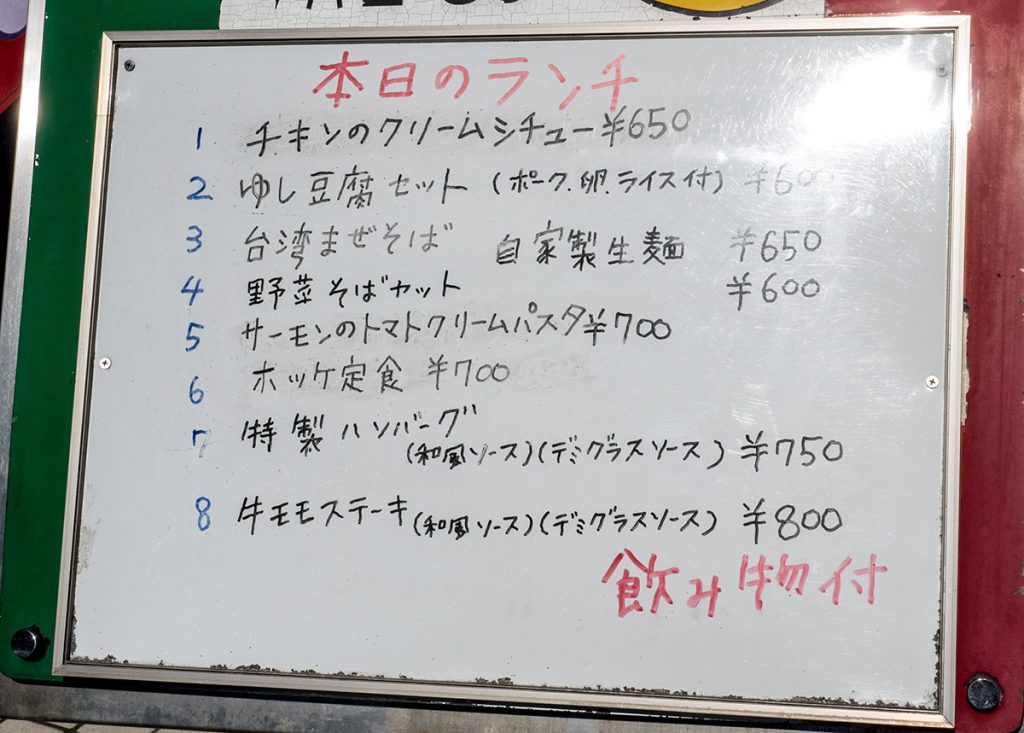 本日のランチ
1 チキンのクリームシチュー ¥650
2 ゆし豆腐セット (ポーク.卵.ライス付) ¥600
3 台湾まぜそば 自家製生麺 ¥650
4 野菜そばセット ¥600
5 サーモンのトマトクリームパスタ ¥700
6 ホッケ定食 ¥700
7 特製ハンバーグ
(和風ソース)(デミグラスソース) ¥750
8 牛モモステーキ (和風ソース)(デミグラスソース) ¥800
飲み物付